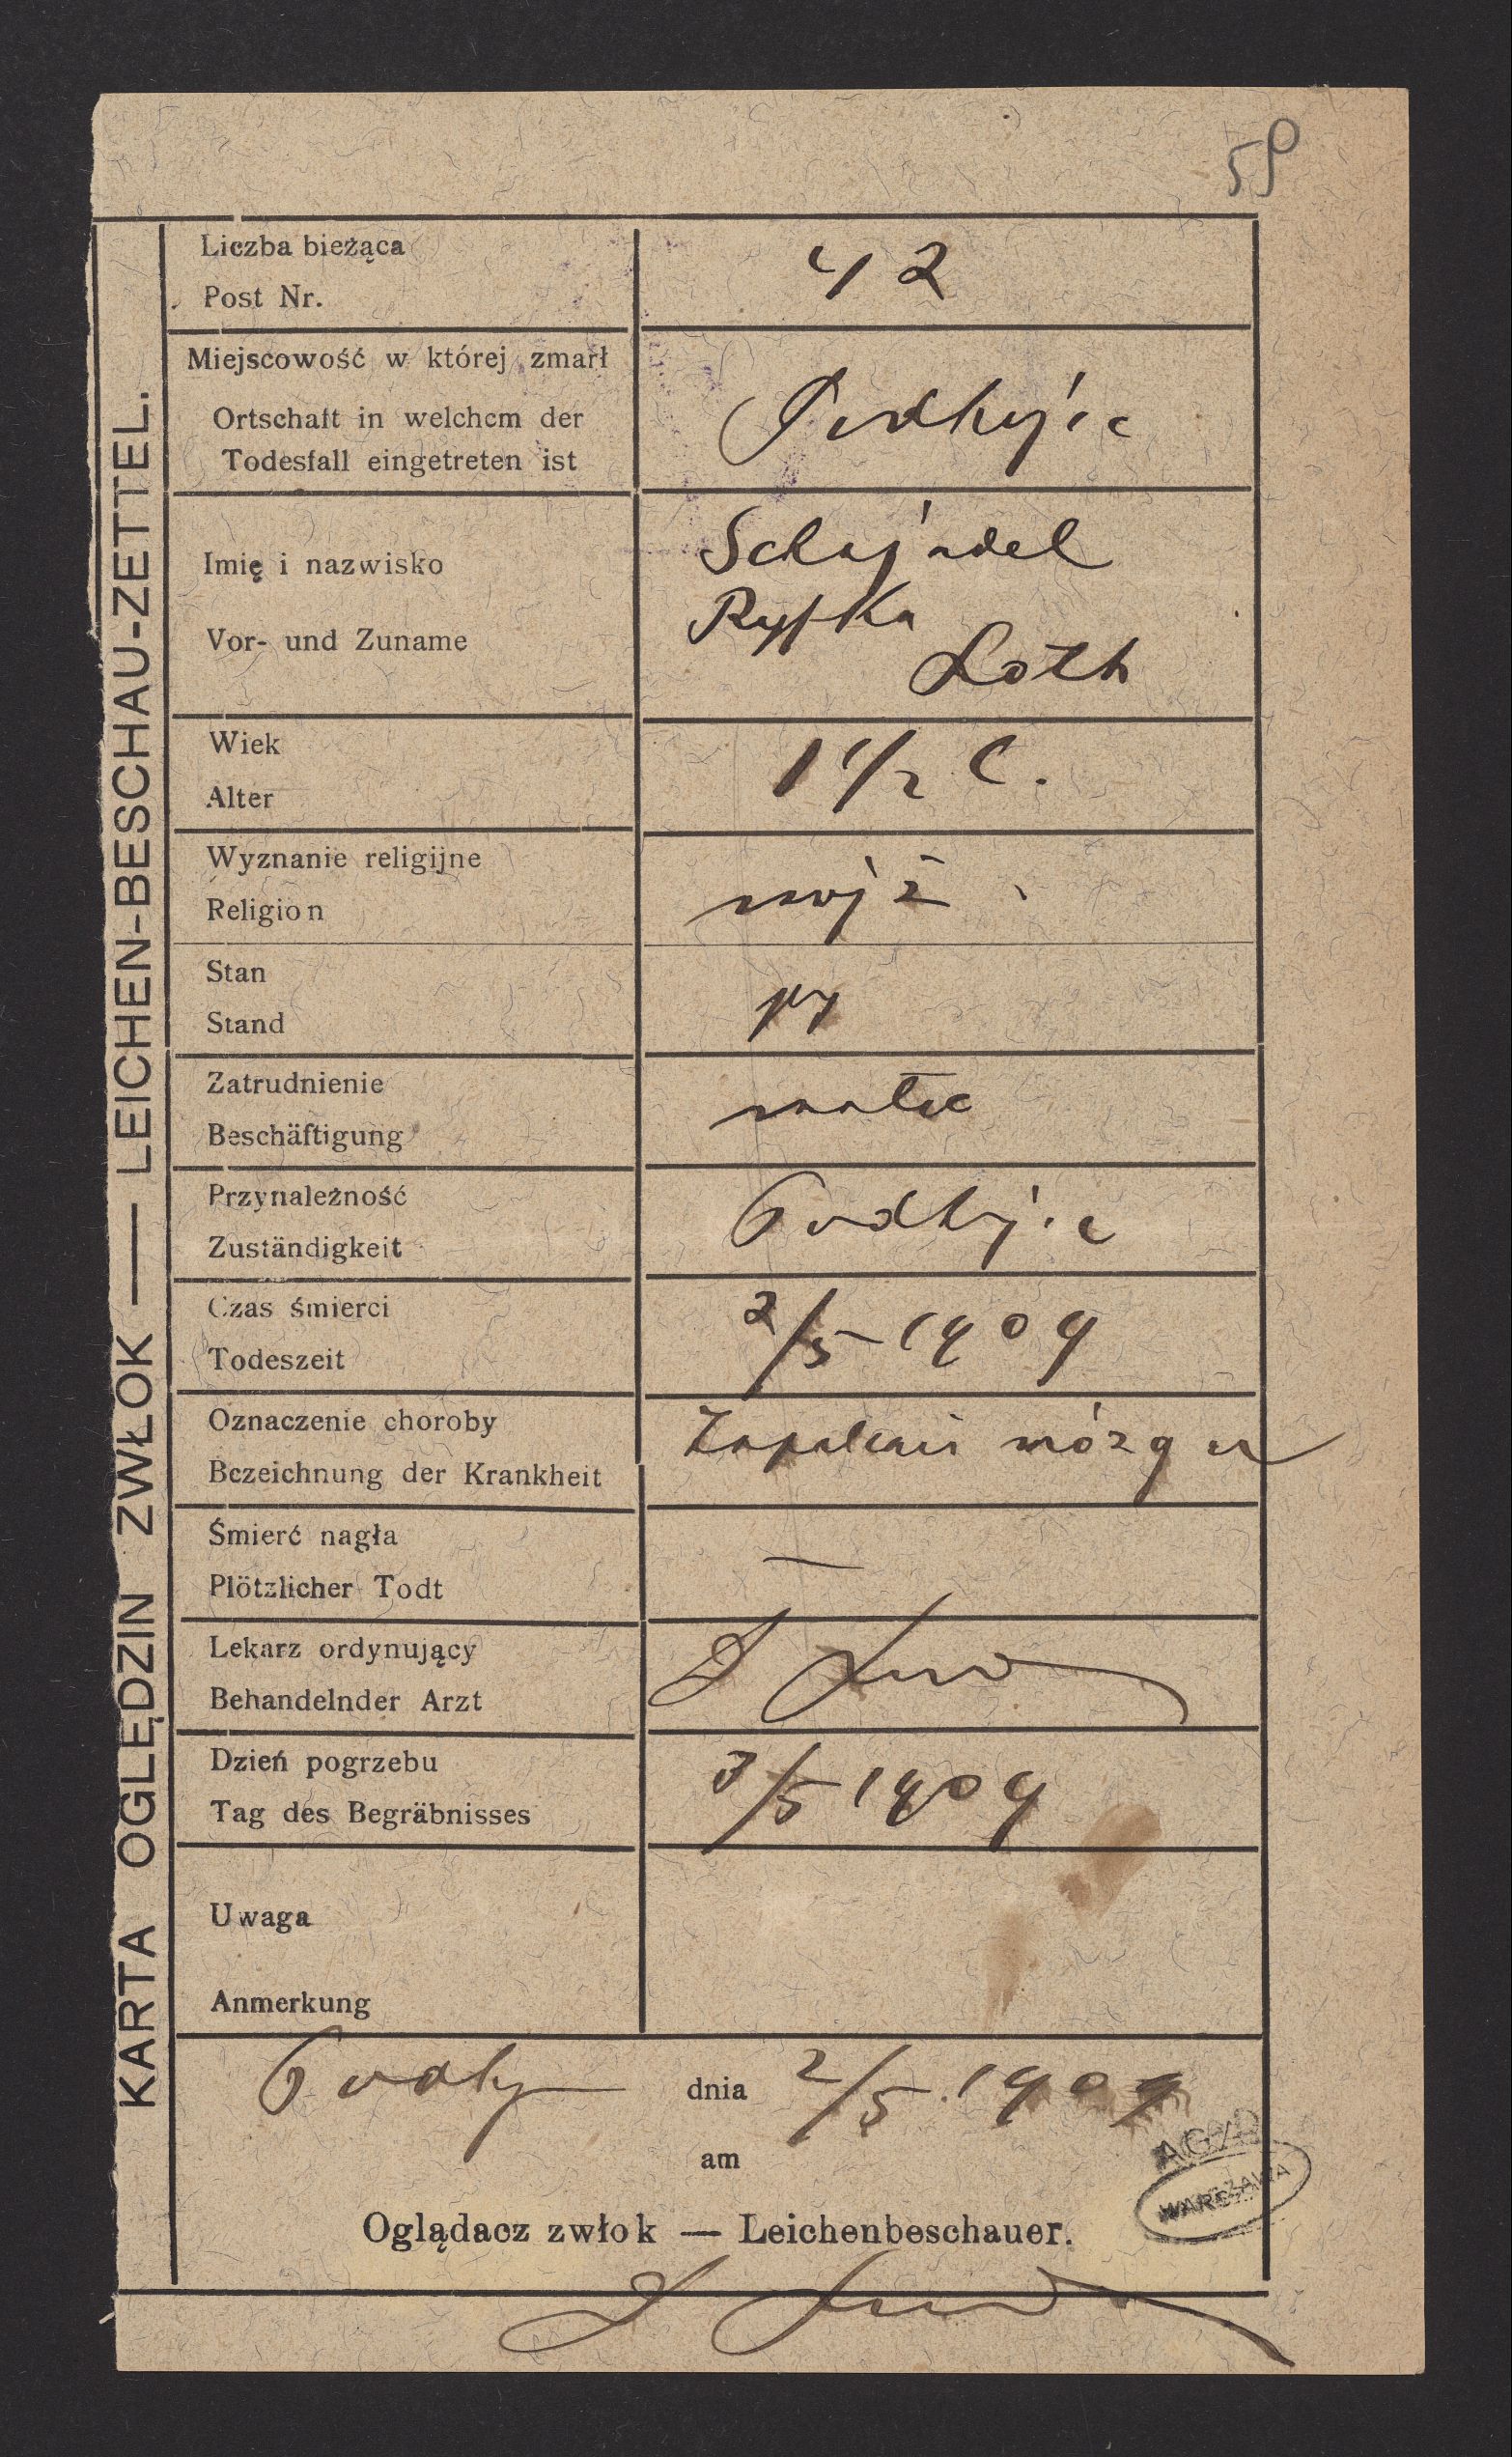 59
KARTA OGLĘDZIN ZWŁOK — LEICHEN-BESCHAU-ZETTEL.
Liczba bieżąca
Post Nr.
42
Miejscowość w której zmarł
Ortschaft in welchem der
Todesfall eingetreten ist
Podhajce
Imię i nazwisko
Vor- und Zuname
Schajndel
Ryfka
Loth
Wiek
Alter
1 1/2 l.
Wyznanie religijne
Religion
mojż
Stan
Stand
Zatrudnienie
Beschäftigung
Przynależność
Zuständigkeit
Podhajce
Czas śmierci
Todeszeit
2/5 1909
Oznaczenie choroby
Bezeichnung der Krankheit
Zapalenie mózgu
Śmierć nagła
Plötzlicher Todt
—
Lekarz ordynujący
Behandelnder Arzt
Dzień pogrzebu
Tag des Begräbnisses
3/5 1909
Uwaga
Anmerkung
dnia 2/5 1909
am
AGAD
WARSZAWA
Oglądacz zwłok — Leichenbeschauer.